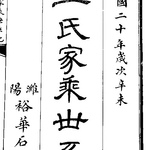 國二十年歲次辛未
氏家乘世
濰陽裕華石